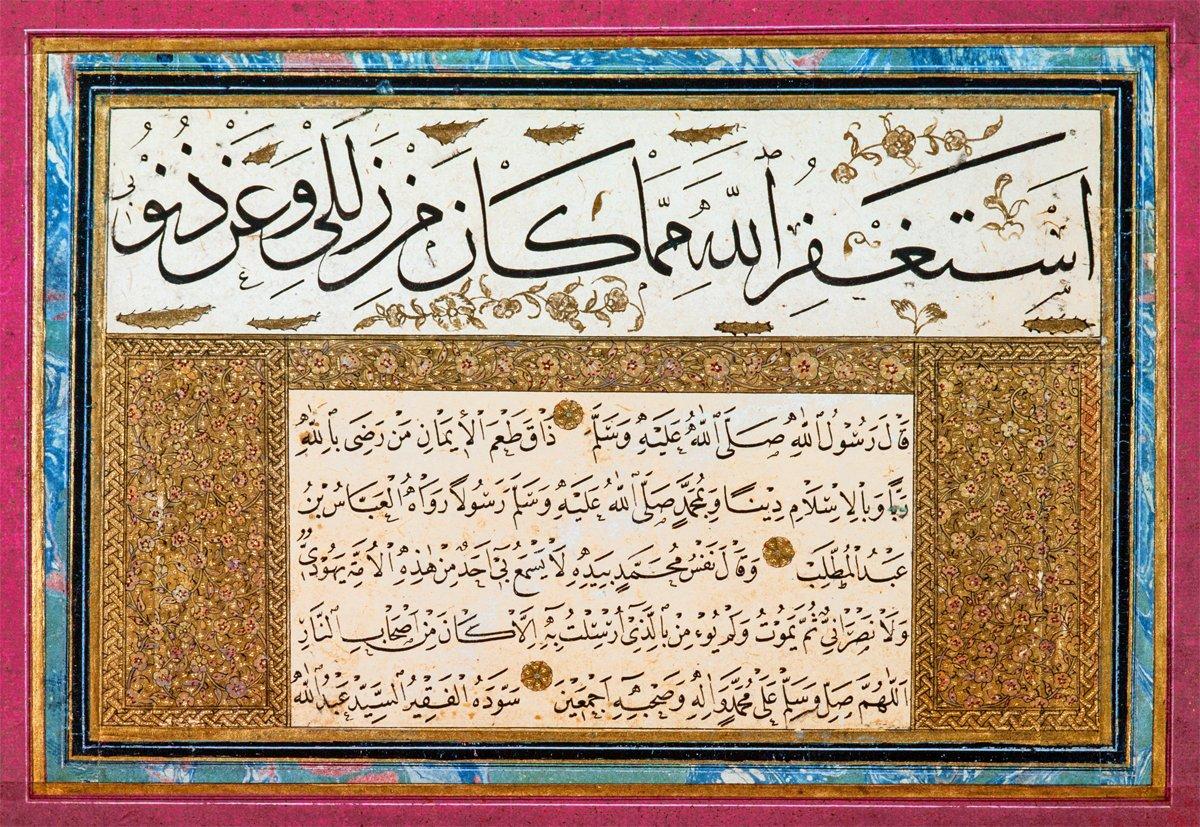 استغفر الله مما كان من زللي وعن ذنوبي
قال رسول الله صلى الله عليه وسلم ذاق طعم الإيمان من رضى بالله
ربا وبالإسلام دينا وبمحمد صلى الله عليه وسلم رسولا رواه العباس بن
عبد المطلب وقال نفس محمد بيده لا يسمع بي أحد من هذه الأمة يهودي
ولا نصراني ثم يموت ولم يؤمن بالذي أرسلت به إلا كان من أصحاب النار
اللهم صل وسلم على محمد واله وصحبه اجمعين سوده الفقير السيد عبد الله